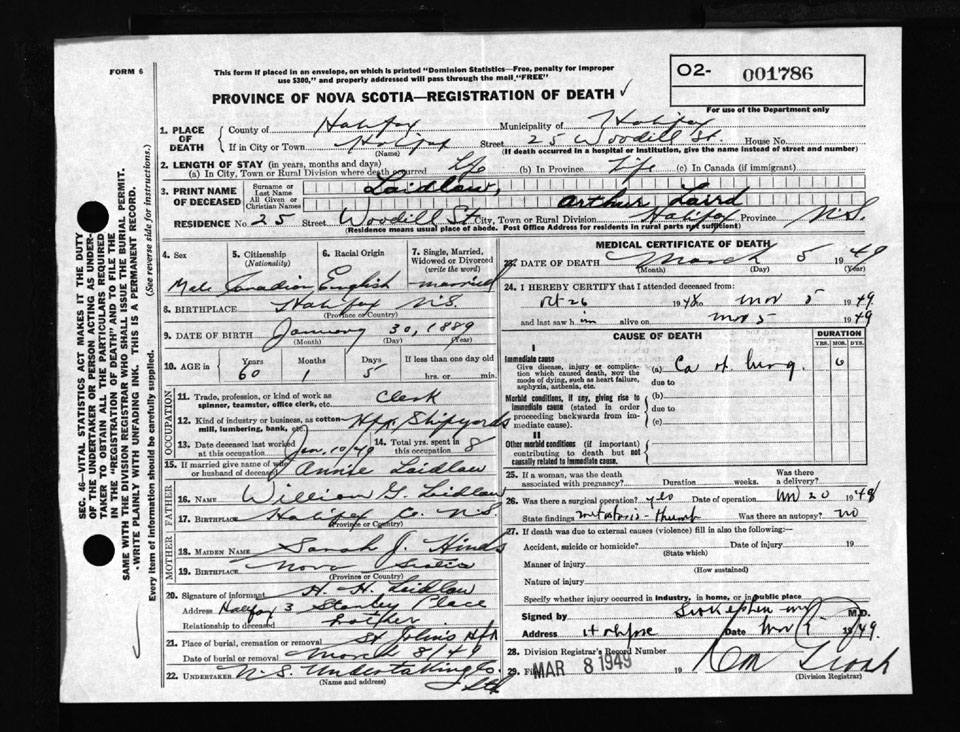 FORM 6
This form if placed in an envelope, on which is printed "Dominion Statistics—Free, penalty for improper
use $300," and properly addressed will pass through the mail "FREE"
PROVINCE OF NOVA SCOTIA—REGISTRATION OF DEATH
O2- 001786
For use of the Department only
1. PLACE OF DEATH
County of Halifax Municipality of Halifax
If in City or Town Halifax Street 25 Woodill St. House No.
(Name) (If death occurred in a hospital or institution, give the name instead of street and number)
2. LENGTH OF STAY (in years, months and days)
(a) In City, Town or Rural Division where death occurred Life (b) In Province Life (c) In Canada (if immigrant)
3. PRINT NAME OF DECEASED
Surname or Last Name Laidlaw,
All Given or Christian Names Arthur Laird
RESIDENCE No. 25 Street Woodill St. City, Town or Rural Division Halifax Province N.S.
(Residence means usual place of abode. Post Office Address for residents in rural parts not sufficient)
4. Sex Male
5. Citizenship (Nationality) Canadian
6. Racial Origin English
7. Single, Married, Widowed or Divorced (write the word) married
8. BIRTHPLACE Halifax N.S.
(Province or Country)
9. DATE OF BIRTH January 30, 1889
(Month) (Day) (Year)
10. AGE in Years 60 Months 1 Days 5 If less than one day old
hrs. or min.
OCCUPATION
11. Trade, profession, or kind of work as spinner, teamster, office clerk, etc. Clerk
12. Kind of industry or business, as cotton mill, lumbering, bank, etc. Hfx Shipyards
13. Date deceased last worked at this occupation Jan. 10/49 14. Total yrs. spent in this occupation 8
15. If married give name of wife or husband of deceased Annie Laidlaw
FATHER
16. NAME William G. Laidlaw
17. BIRTHPLACE Halifax Co. N.S.
(Province or Country)
MOTHER
18. MAIDEN NAME Sarah J. Hinds
19. BIRTHPLACE Nova Scotia
(Province or Country)
20. Signature of informant H. H. Laidlaw
Address Halifax 3 Stanley Place
Relationship to deceased
21. Place of burial, cremation or removal St John's Hfx
Date of burial or removal March 8/49
22. UNDERTAKER N.S. Undertaking Co. Ltd
(Name and address)
MEDICAL CERTIFICATE OF DEATH
23. DATE OF DEATH March 5 1949
(Month) (Day) (Year)
24. I HEREBY CERTIFY that I attended deceased from:
Oct 26 1948 to Mar 5 1949
and last saw him alive on Mar 5 1949
CAUSE OF DEATH
DURATION
YRS. MOS. DYS.
I
Immediate cause
Give disease, injury or complication which caused death, NOT the mode of dying, such as heart failure, asphyxia, asthenia, etc.
(a) Ca of lung. 6
due to
Morbid conditions, if any, giving rise to immediate cause (stated in order proceeding backwards from immediate cause).
(b)
due to
(c)
II
Other morbid conditions (if important) contributing to death but not causally related to immediate cause.
25. If a woman, was the death associated with pregnancy? Duration weeks. Was there a delivery?
26. Was there a surgical operation? yes Date of operation 20 1948
State findings metastasis - thumb Was there an autopsy? no
27. If death was due to external causes (violence) fill in also the following:
Accident, suicide or homicide? Date of injury 19
(State which)
Manner of injury
(How sustained)
Nature of injury
Specify whether injury occurred in industry, in home, or in public place
Signed by M.D.
Address Date 1949.
28. Division Registrar's Record Number
29. MAR 8 1949 19
(Division Registrar)
SEC. 46—VITAL STATISTICS ACT MAKES IT THE DUTY
OF THE UNDERTAKER OR PERSON ACTING AS UNDERTAKER
TO OBTAIN ALL THE PARTICULARS REQUIRED
IN THE "REGISTRATION OF DEATH" AND TO FILE THE
SAME WITH THE DIVISION REGISTRAR WHO SHALL ISSUE THE BURIAL PERMIT.
WRITE PLAINLY WITH UNFADING INK. THIS IS A PERMANENT RECORD.
Every item of information should be carefully supplied. (See reverse side for instructions.)